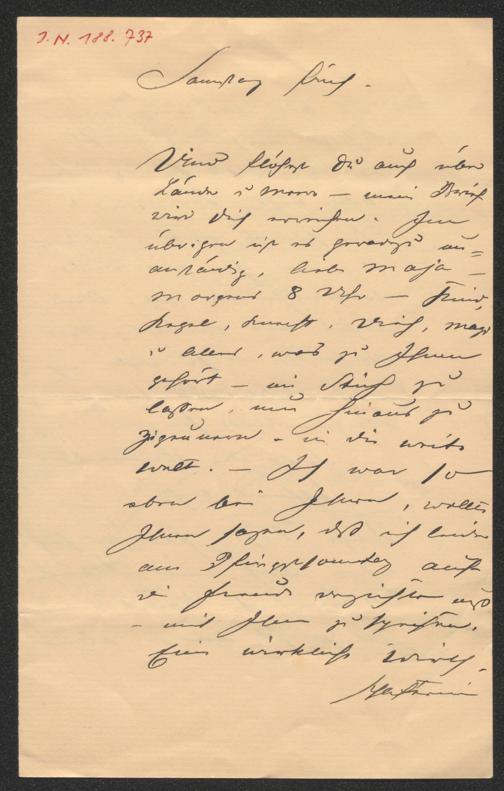 J.N. 188.737
Samstag früh.
Und flöhest Du auch über
Länder u Meere – mein Brief
wird Dich erreichen. Im
übrigen ist es geradezu un=
anständig, liebe Maja –
morgens 8 Uhr – Kind,
Kegel, Knecht, Vieh, Magd
u Alles, was zu Ihnen
gehört – im Stich zu
lassen, um hinaus zu
zigeunern – in die weite
Welt. – Ich war so
eben bei Ihnen, wollte
Ihnen sagen, daß ich leider
am Pfingstsonntag auf
die Freude verzichten muß
– mit Ihnen zu speisen.
Ein wirklich